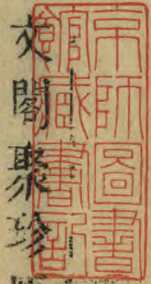 京師圖書
館藏書記
文閣聚珍